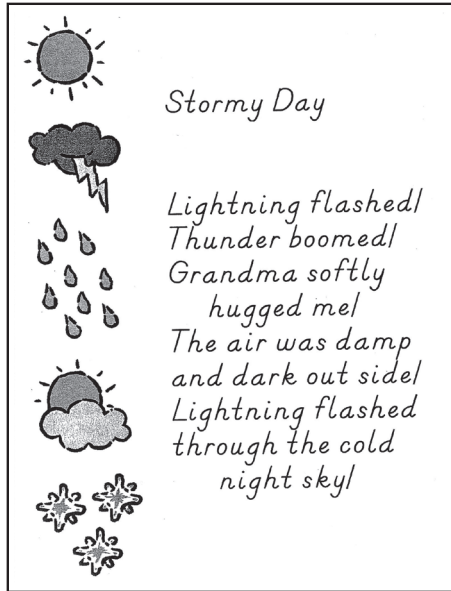 Stormy Day
Lightning flashed/
Thunder boomed/
Grandma softly
hugged me/
The air was damp
and dark out side/
Lightning flashed
through the cold
night sky/